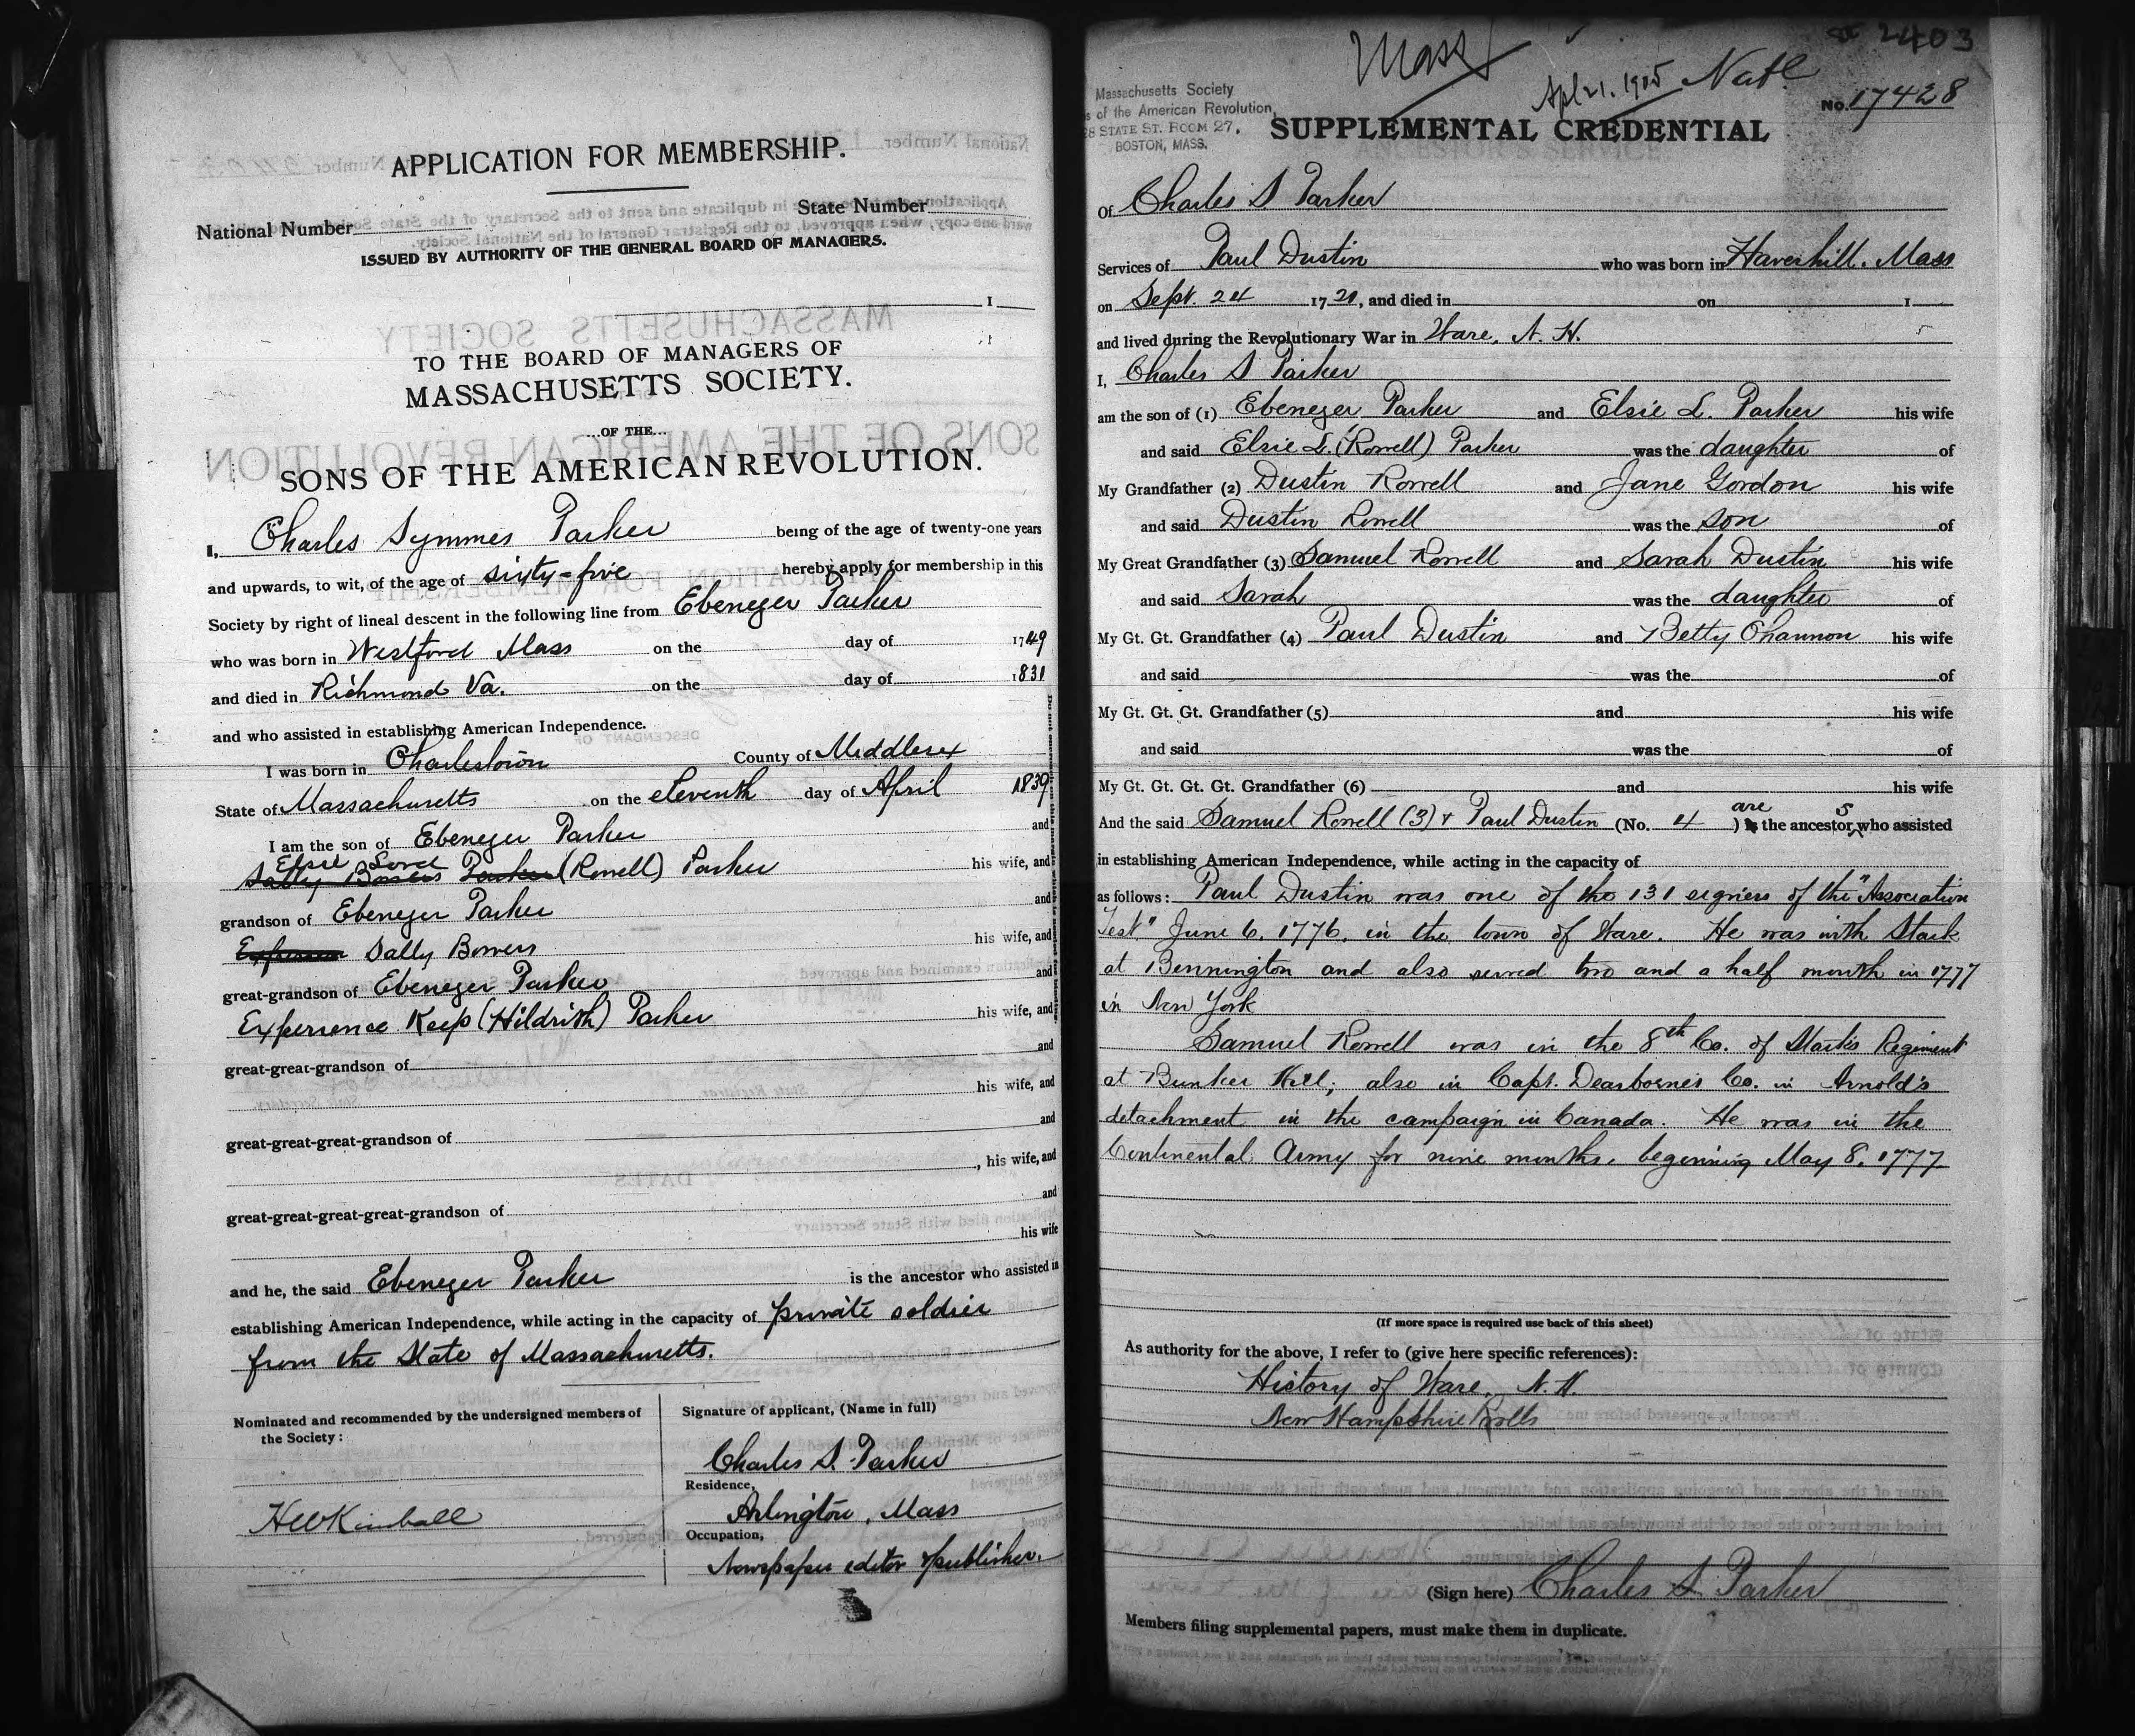 APPLICATION FOR MEMBERSHIP.
National Number State Number
ISSUED BY AUTHORITY OF THE GENERAL BOARD OF MANAGERS.
1
TO THE BOARD OF MANAGERS OF
MASSACHUSETTS SOCIETY.
...OF THE...
SONS OF THE AMERICAN REVOLUTION.
I, Charles Symmes Parker being of the age of twenty-one years
and upwards, to wit, of the age of sixty-five hereby apply for membership in this
Society by right of lineal descent in the following line from Ebenezer Parker
who was born in Westford Mass on the day of 1749
and died in Richmond Va. on the day of 1831
and who assisted in establishing American Independence.
I was born in Charlestown County of Middlesex
State of Massachusetts on the eleventh day of April 1839
I am the son of Ebenezer Parker and
Elsie Lord
Sally Bowers Parker (Rowell) Parker his wife, and
grandson of Ebenezer Parker and
Sally Bowers his wife, and
great-grandson of Ebenezer Parker and
Experience Keep (Hildrith) Parker his wife, and
great-great-grandson of and
his wife, and
great-great-great-grandson of and
, his wife, and
great-great-great-great-grandson of and
his wife
and he, the said Ebenezer Parker is the ancestor who assisted in
establishing American Independence, while acting in the capacity of private soldier
from the State of Massachusetts.
Nominated and recommended by the undersigned members of
the Society:
HWKimball
Signature of applicant, (Name in full)
Charles S. Parker
Residence,
Arlington, Mass
Occupation,
Newspaper editor & publisher.
2403
Mass
Apl 21. 1905 Natl
No. 17428
Massachusetts Society
of the American Revolution,
STATE ST. ROOM 27,
BOSTON, MASS.
SUPPLEMENTAL CREDENTIAL
Of Charles S Parker
Services of Paul Dustin who was born in Haverhill. Mass
on Sept. 24 17 , and died in on 1
and lived during the Revolutionary War in Ware, N. H.
I, Charles S Parker
am the son of (1) Ebenezer Parker and Elsie L. Parker his wife
and said Elsie L. (Rowell) Parker was the daughter of
My Grandfather (2) Dustin Rowell and Jane Gordon his wife
and said Dustin Rowell was the son of
My Great Grandfather (3) Samuel Rowell and Sarah Dustin his wife
and said Sarah was the daughter of
My Gt. Gt. Grandfather (4) Paul Dustin and Betty Channon his wife
and said was the of
My Gt. Gt. Gt. Grandfather (5) and his wife
and said was the of
My Gt. Gt. Gt. Gt. Grandfather (6) and his wife
And the said Samuel Rowell (3) & Paul Dustin (No. 4 ) are the ancestors who assisted
in establishing American Independence, while acting in the capacity of
as follows: Paul Dustin was one of the 131 signers of the "Association
Test" June 6, 1776, in the town of Ware. He was with Stark
at Bennington and also served two and a half month in 1777
in New York
Samuel Rowell was in the 8th Co. of Starks Regiment
at Bunker Hill; also in Capt. Dearborne's Co. in Arnold's
detachment in the campaign in Canada. He was in the
Continental Army for nine months, beginning May 8. 1777
(If more space is required use back of this sheet)
As authority for the above, I refer to (give here specific references):
History of Ware, N. H.
New Hampshire Rolls
(Sign here) Charles S Parker
Members filing supplemental papers, must make them in duplicate.